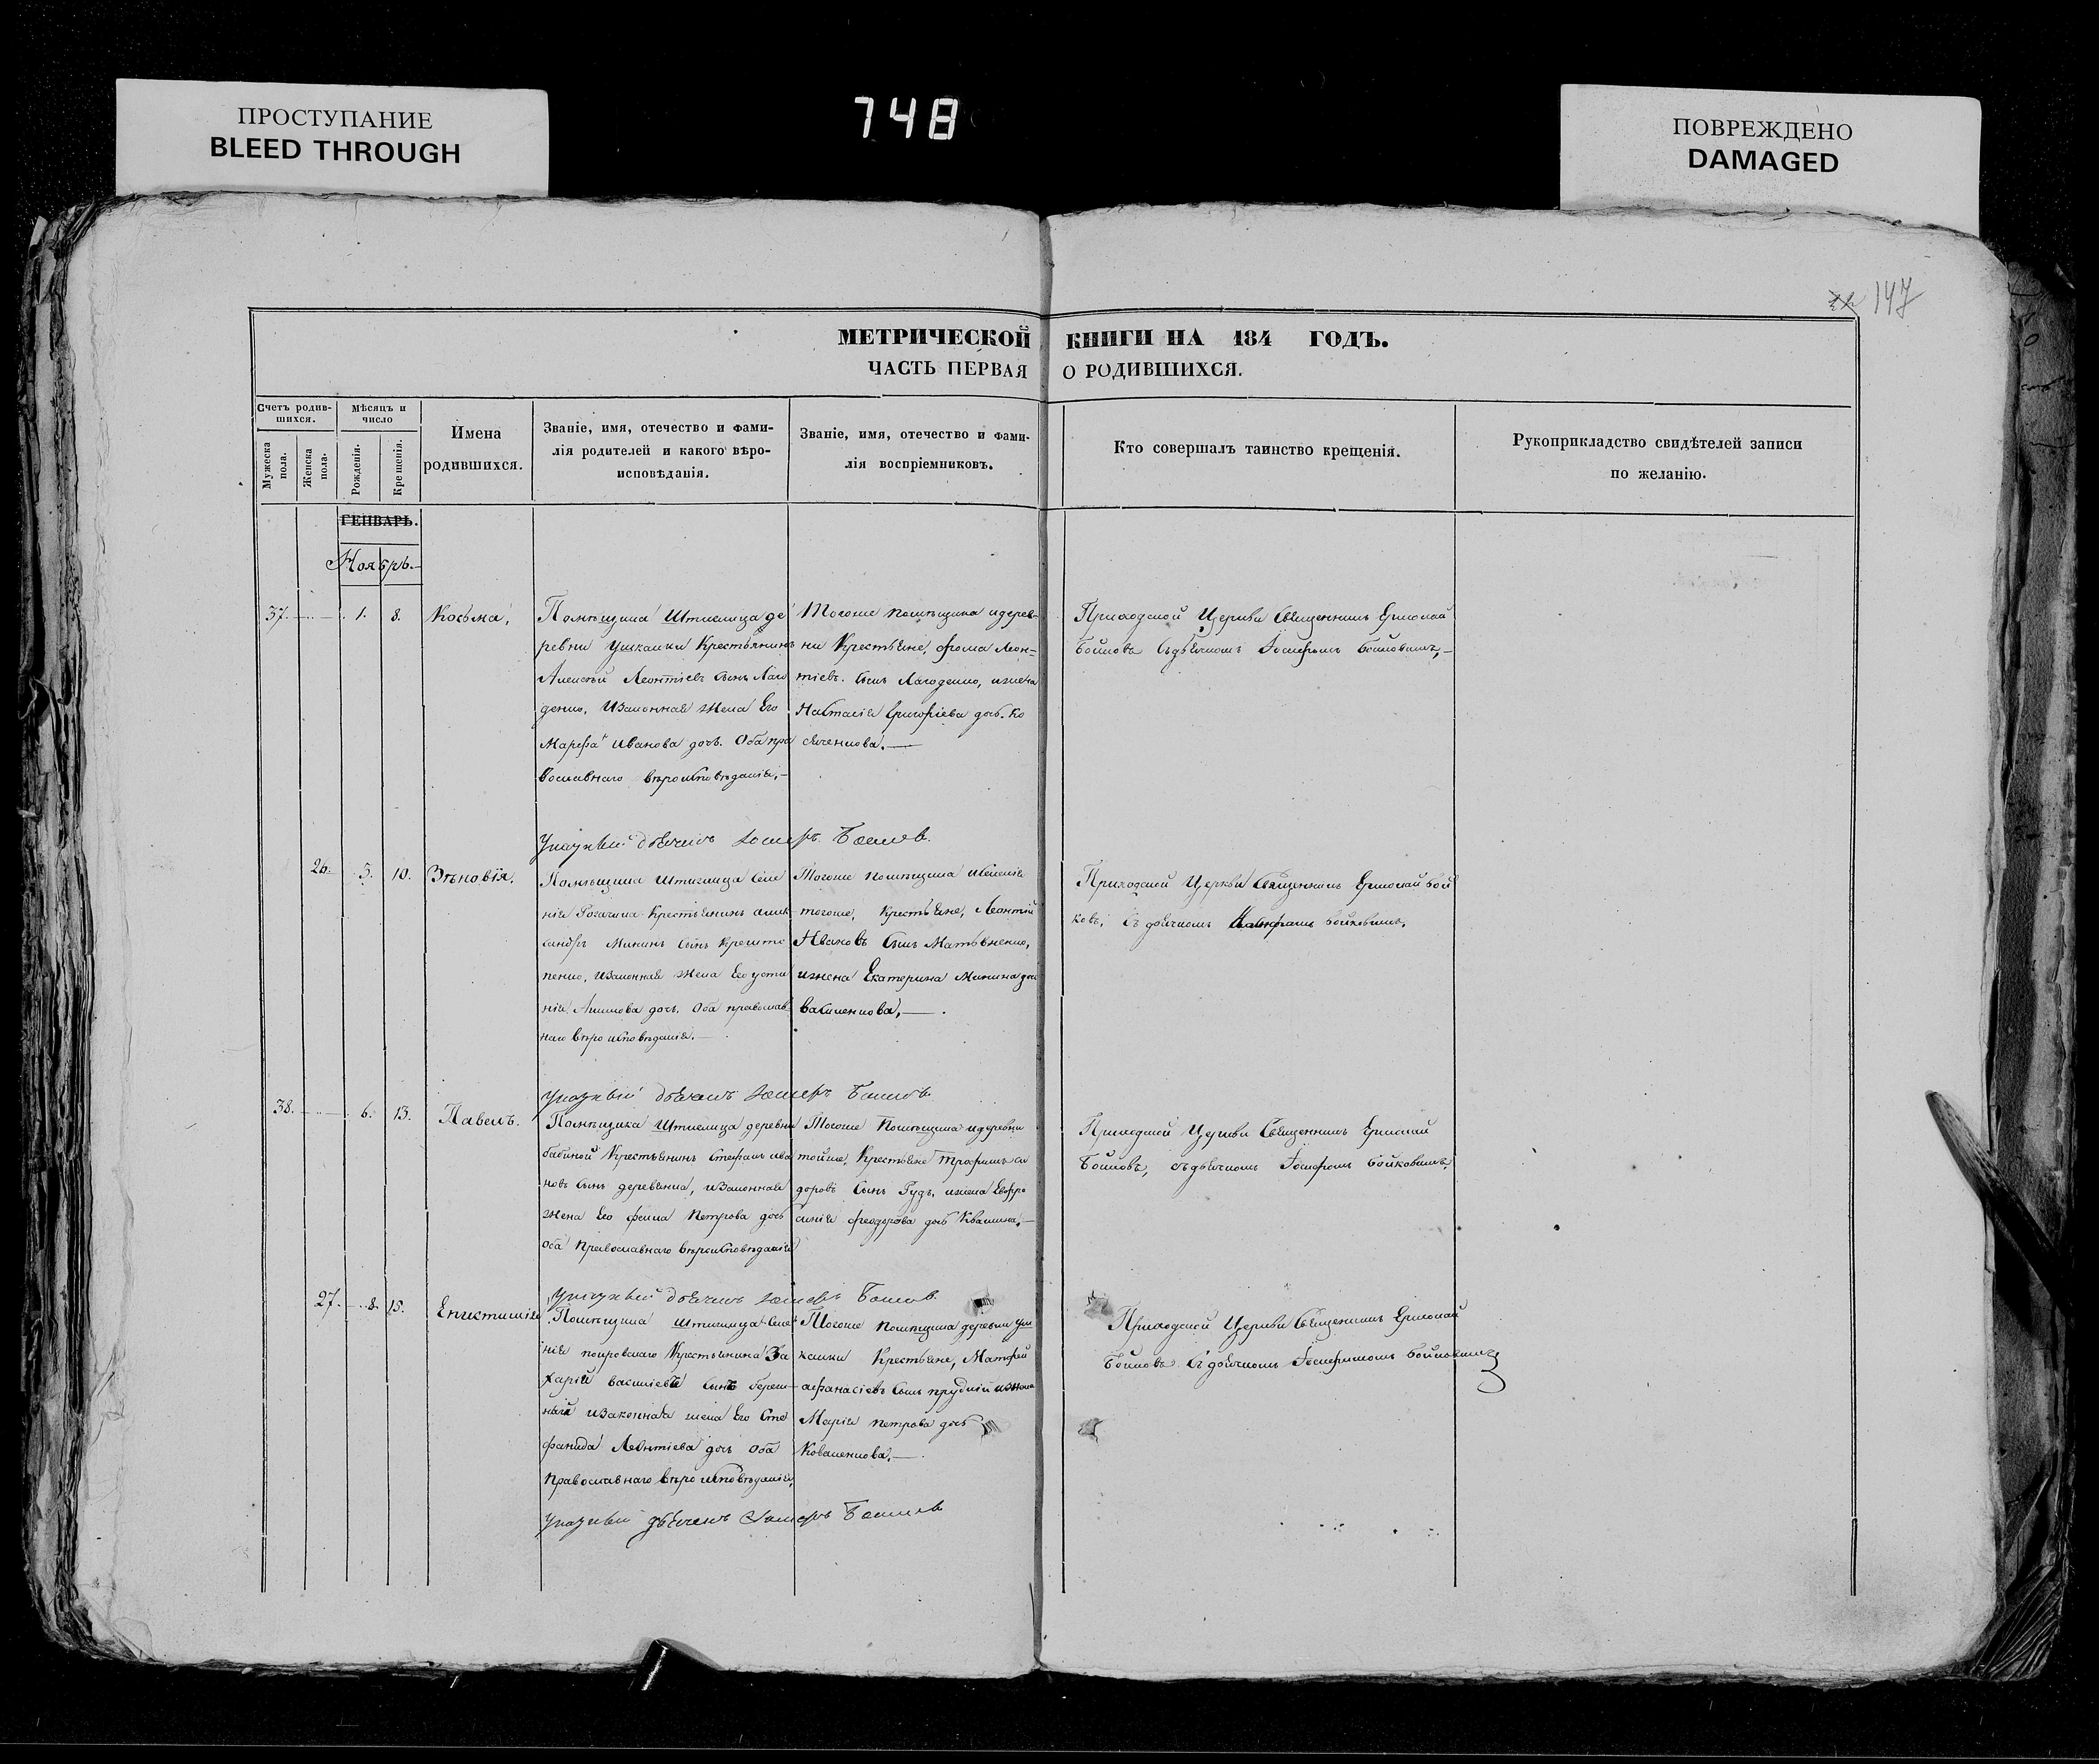 ПРОСТУПАНИЕ
BLEED THROUGH
748
ПОВРЕЖДЕНО
DAMAGED
147
МЕТРИЧЕСКОЙ КНИГИ НА 184 ГОДЪ.
ЧАСТЬ ПЕРВАЯ О РОДИВШИХСЯ.
Счетъ родив-
шихся.
Мужеска
пола.
Женска
пола.
Мѣсяцъ и
число
Рожденія.
Крещенія.
Имена
родившихся.
Званіе, имя, отечество и фами-
лія родителей и какого вѣро-
исповѣданія.
Званіе, имя, отечество и фами-
лія воспріемниковъ.
Кто совершалъ таинство крещенія.
Рукоприкладство свидѣтелей записи
по желанію.
ГЕНВАРЬ.
Ноябрь.
37. 1. 8. Косьма,
Помѣщика Штиглица де
ревни Ушкалки Крестьянинъ
Алексѣй Леонтіевъ сынъ Лаго
денко, Изаконная жена Его
Марѳа Иванова дочь. Оба пра
вославнаго вѣроисповѣданія,
Тогоже помѣщика идерев-
ни Крестьяне, Ѳома Леон-
тіевъ сынъ Лагоденко, ижена
Настасія Григоріева дочь Ко
Приходской Церкви Священникъ Ермолай
Бойковъ съдьячкомъ Іосифомъ Бойковымъ,
Указный дьячекъ Іосифъ Бойков.
26. 5. 10. Зѣновія.
Помѣщика Штиглица Селе
нія Рогачика Крестьянинъ алек
сандръ Мининъ сынъ
пенко, Изаконная жена Его усти
нія Акимова дочь. Оба православ
наго вѣроисповѣданія.
Тогоже помѣщика иселенія
тогоже, Крестьяне, Леонтій
Ивановъ сынъ Матвѣенко,
ижена Екатерина Минина доч
Василенкова,
Приходской Церкви Священникъ Ермолай Бой
ковъ, съ дьячкомъ Бойковымъ.
Указный дьячекъ Іосифъ Бойков.
38. 6. 13. Павелъ.
Помѣщика Штиглица деревни
бабиной Крестьянинъ Стефанъ ива
новъ сынъ деревянка, изаконная
жена Его Ѳекла Петрова дочь
оба Православнаго вѣроисповѣданія
Тогоже Помѣщика идеревни
тойже, Крестьяне Трофимъ си
доровъ сынъ Гудъ, ижена Евфро
синія Ѳеодорова дочь Квашина,
Приходской Церкви Священникъ Ермолай
Бойковъ, съдьячкомъ Іосифомъ Бойковымъ,
Указный дьячекъ Іосифъ Бойков.
27. 8. 15. Епистимія
Помѣщика Штиглица Селе
нія покровскаго Крестьянина За
харій василіевъ сынъ береж
ный изаконная жена Его Сте
фанида Леонтіева дочь Оба
Православнаго вѣроисповѣданія,
Тогоже Помѣщика деревни уш
калки Крестьяне, Матфей
аѳанасіевъ сынъ прудкій ижена
Марія петрова дочь
Коваленкова,
Приходской Церкви Священникъ Ермолай
Бойковъ съ дьячкомъ Бойковымъ
Указный дьячекъ Іосифъ Бойков